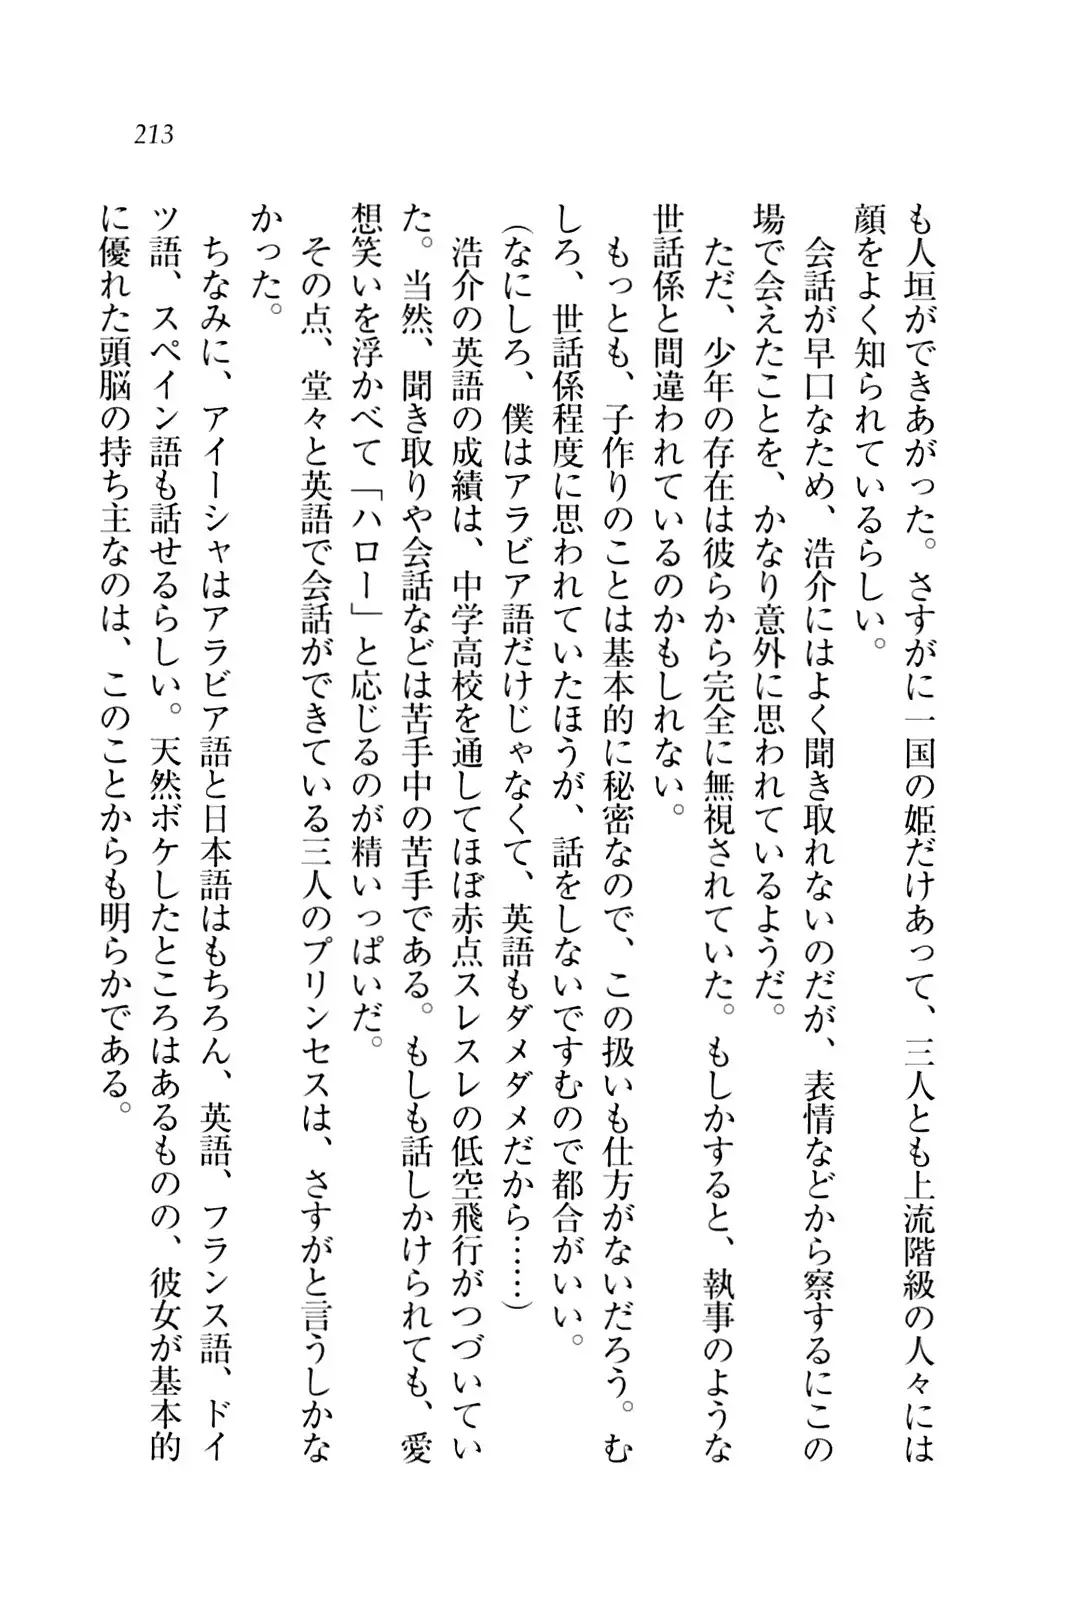 213
も人垣ができあがった。さすがに一国の姫だけあって、三人とも上流階級の人々には
顔をよく知られているらしい。
会話が早口なため、浩介にはよく聞き取れないのだが、表情などから察するにこの
場で会えたことを、かなり意外に思われているようだ。
ただ、少年の存在は彼らから完全に無視されていた。もしかすると、執事のような
世話係と間違われているのかもしれない。
もっとも、子作りのことは基本的に秘密なので、この扱いも仕方がないだろう。む
しろ、世話係程度に思われていたほうが、話をしないですむので都合がいい。
(なにしろ、僕はアラビア語だけじゃなくて、英語もダメダメだから……)
浩介の英語の成績は、中学高校を通してほぼ赤点スレスレの低空飛行がつづいてい
た。当然、聞き取りや会話などは苦手中の苦手である。もしも話しかけられても、愛
想笑いを浮かべて「ハロー」と応じるのが精いっぱいだ。
その点、堂々と英語で会話ができている三人のプリンセスは、さすがと言うしかな
かった。
ちなみに、アイーシャはアラビア語と日本語はもちろん、英語、フランス語、ドイ
ツ語、スペイン語も話せるらしい。天然ボケしたところはあるものの、彼女が基本的
に優れた頭脳の持ち主なのは、このことからも明らかである。